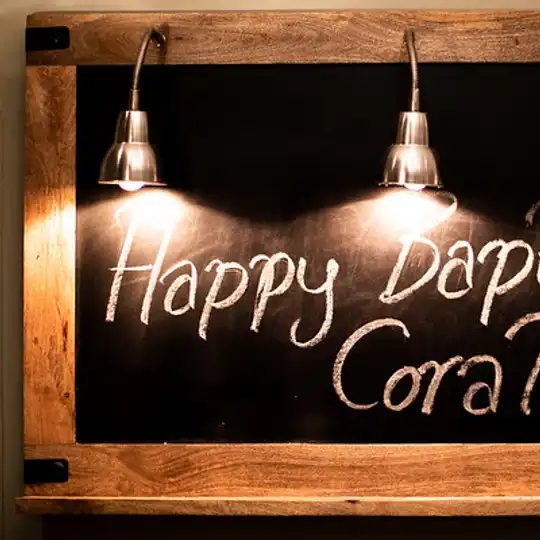 Happy Bap
Cora